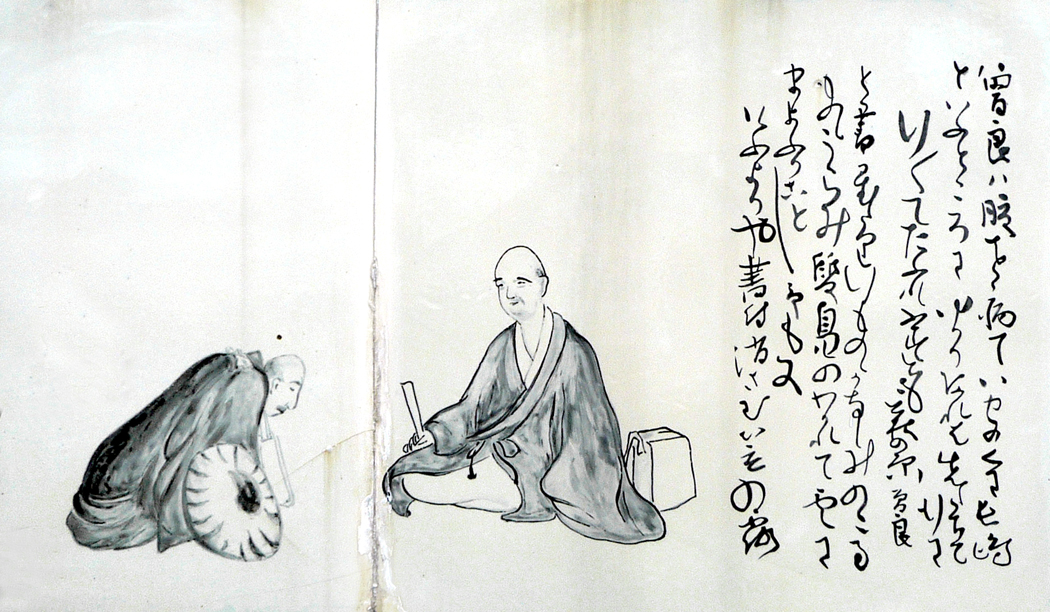 曽良ハ腹を病ていせのくに長嶋
といふところにゆかりあれは先立て行に
行〱てたふれ伏とも萩の原 曽良
と書置たり行ものゝかなしみのこる
ものゝうらみ雙鳧のわかれて雲に
まよふかことし予も又
けふよりや書付消さむかさの露